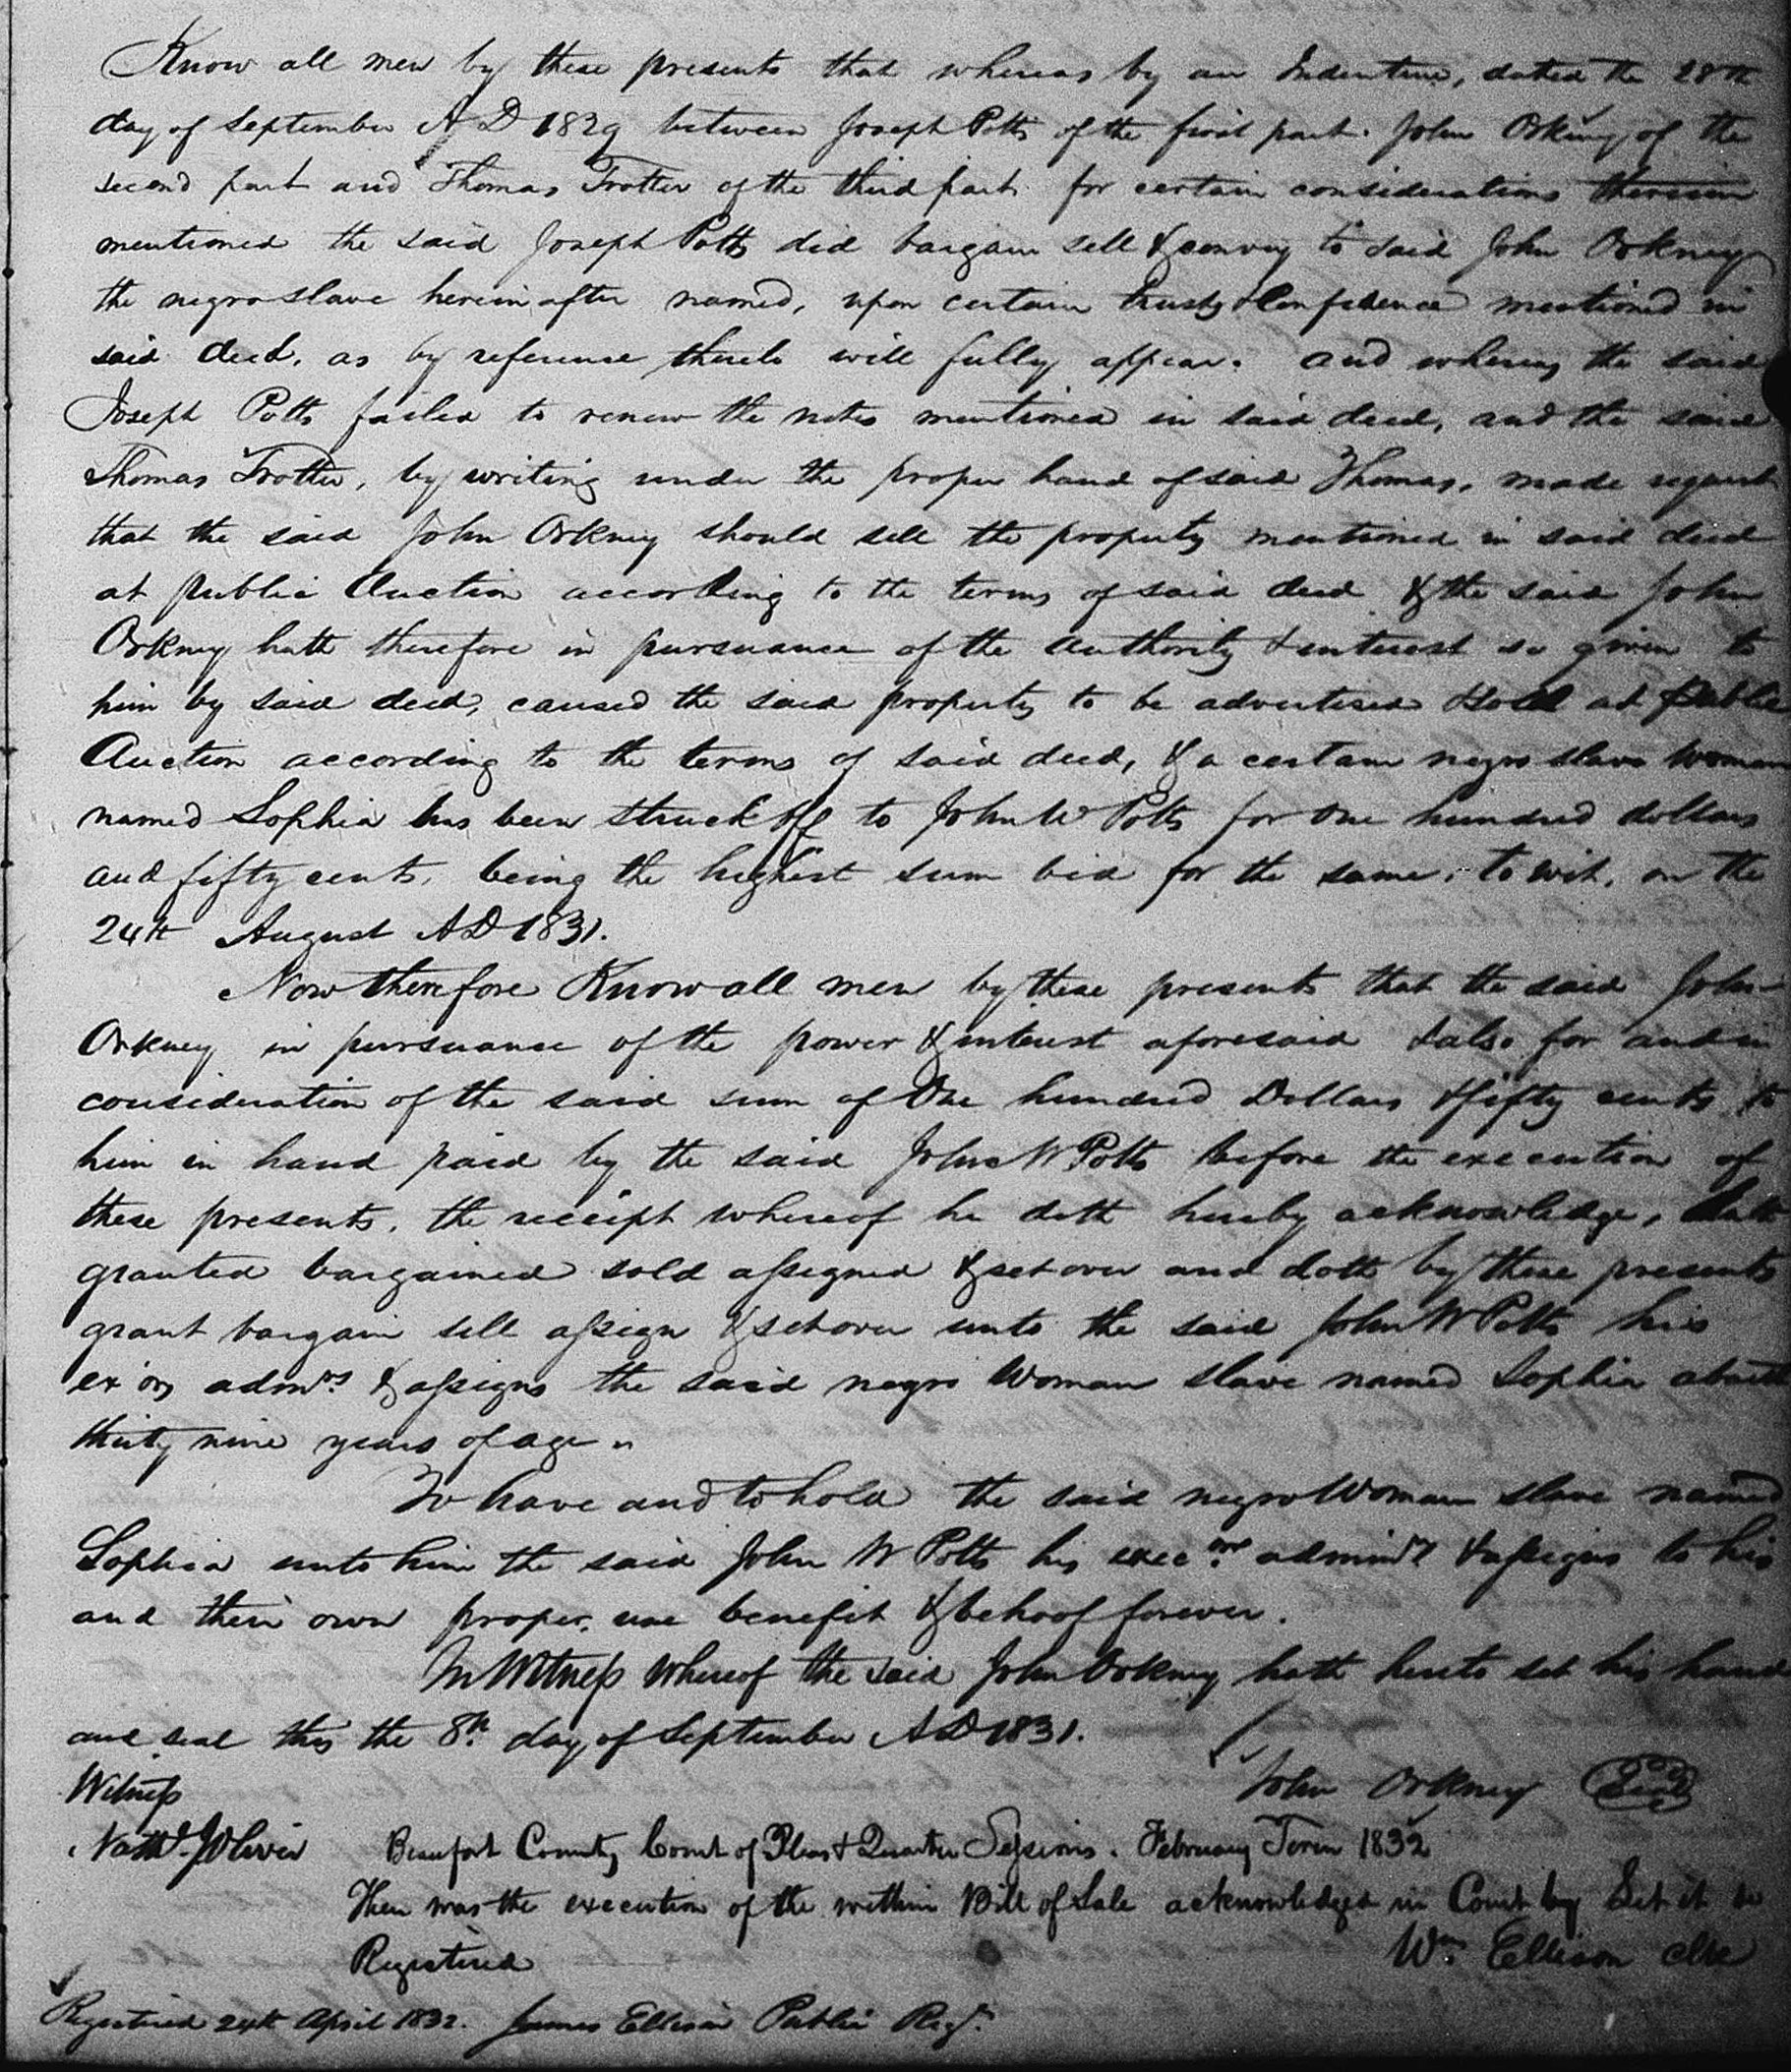 Know all men by these presents that whereas by an Indenture, dated the 28th
day of September A D 1829 between Joseph Potts of the first part. John Orkney of the
second part and Thomas Trotter of the third part for certain considerations therein
mentioned the said Joseph Potts did bargain sell & convey to said John Orkney
the negro slave herein after named, upon certain trusts & Confidence mentioned in
said deed, as by reference thereto will fully appear. and whereas the said
Joseph Potts failed to renew the notes mentioned in said deed, and the said
Thomas Trotter, by writing under the proper hand of said Thomas, made request
that the said John Orkney should sell the property mentioned in said deed
at public Auction according to the terms of said deed & the said John
Orkney hath therefore in pursuance of the authority & interest so given to
him by said deed, caused the said property to be advertised & sold at Public
Auction according to the terms of said deed, & a certain negro slave woman
named Sophia has been struck off to John W Potts for One hundred dollars
and fifty cents, being the highest sum bid for the same, to wit, on the
24th August AD 1831.
Now therefore Know all men by these presents that the said John
Orkney in pursuance of the power & interest aforesaid & also for and in
consideration of the said sum of One hundred Dollars & fifty cents to
him in hand paid by the said John W Potts before the execution of
these presents, the receipt whereof he doth hereby acknowledge, hath
granted bargained sold assigned & set over and doth by these presents
grant bargain sell assign & set over unto the said John W Potts his
ex'ors admrs & assigns the said negro Woman slave named Sophia about
thirty nine years of age
To have and to hold the said negro Woman slave named
Sophia unto him the said John W Potts his & assigns to his
and their own proper, use benefit & behoof forever.
In Witness Whereof the said John Orkney hath hereto set his hand
and seal this the 8th day of September AD 1831.
Witness
John Orkney Seal
Nathl. J Oliver
Beaufort County Court of Pleas & Quarter Sessions. February Term 1832
Then was the execution of the within Bill of Sale acknowledged in Court by Let it be
Registered
Wm Ellison Clk
Registered 24th April 1832. James Ellison Public Regr.